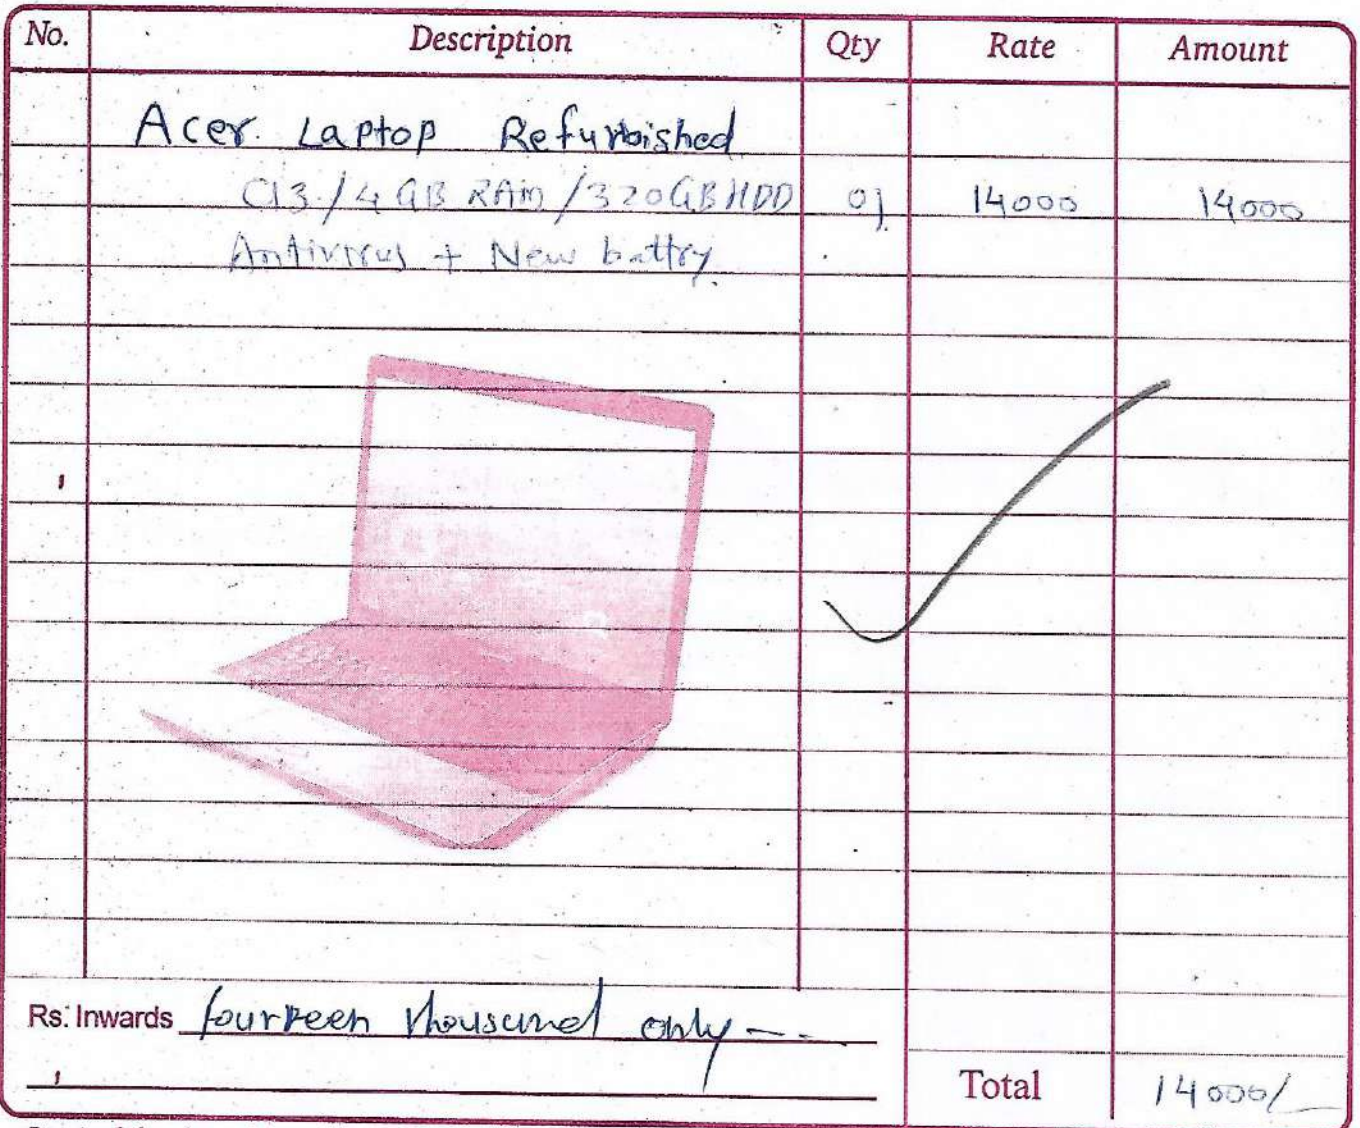 No. Description Qty Rate Amount
Acer Laptop Refurbished
Ci3/4GB RAM/320GBHDD 01 14000 14000
Antivirus + New battry
Rs. Inwards fourteen thousand only --
Total 14000/